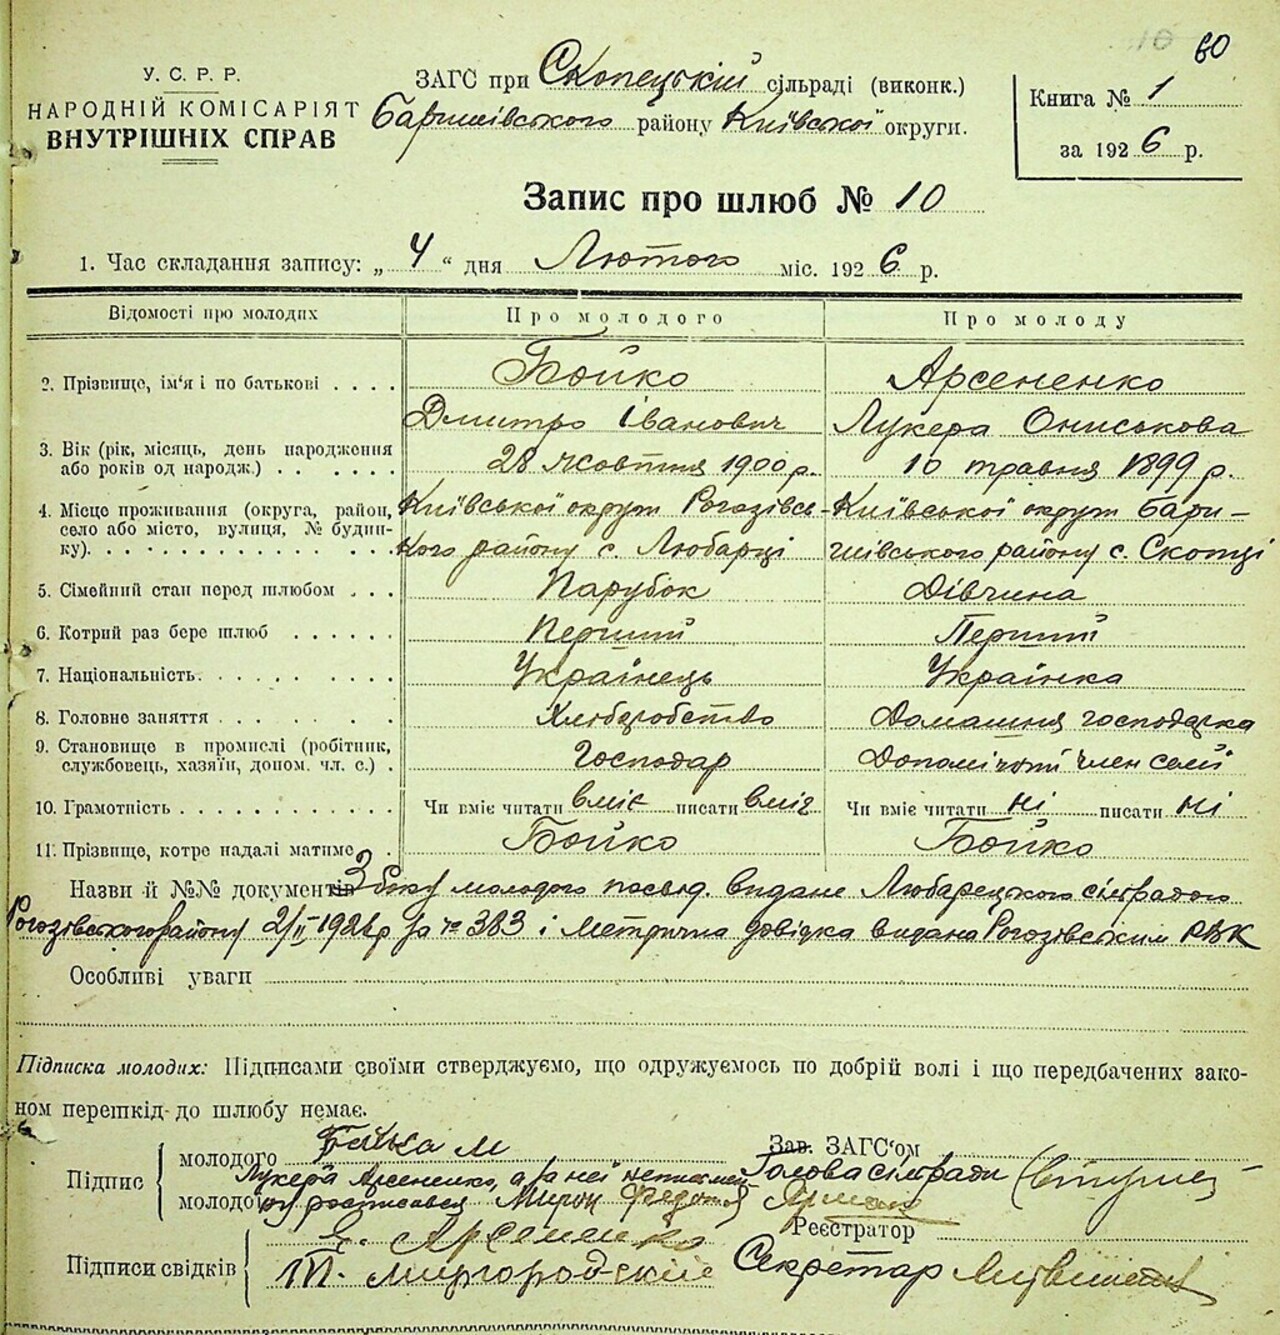 60
У. С. Р. Р.
НАРОДНІЙ КОМІСАРІЯТ
ВНУТРІШНІХ СПРАВ
ЗАГС при Скопецькій сільраді (виконк.)
Баришівського району Київської округи.
Книга № 1
за 1926 р.
Запис про шлюб № 10
1. Час складання запису: „4“ дня Лютого міс. 1926 р.
Відомості про молодих
Про молодого
Про молоду
2. Прізвище, ім'я і по батькові . . . .
Бойко
Арсененко
Дмитро Іванович
Лукера Ониськова
3. Вік (рік, місяць, день народження
або років од народж.) . . . . . .
28 жовтня 1900 р.
10 травня 1899 р.
4. Місце проживання (округа, район,
село або місто, вулиця, № будин-
ку). . . . . . . . . . . . . .
Київської округи Рогозівсь-
кого району с. Любарці
Київської округи Бари-
шівського району с. Скопці
5. Сімейний стан перед шлюбом . . .
Парубок
Дівчина
6. Котрий раз бере шлюб . . . . . .
Перший
Перший
7. Національність. . . . . . . . . .
Українець
Українка
8. Головне заняття . . . . . . . .
Хліборобство
Домашня господарка
9. Становище в промислі (робітник,
службовець, хазяїн, допом. чл. с.) .
Господар
Допомічний член семї
10. Грамотність . . . . . . . . . . .
Чи вміє читати вміє писати вміє
Чи вміє читати ні писати ні
11. Прізвище, котре надалі матиме .
Бойко
Бойко
Назви й №№ документів З боку молодого посвід. видане Любарецькою сільрадою
Рогозівського району 2/II 1926 р за № 383 і метрична довідка видана Рогозівським РВК
Особливі уваги
Підписка молодих: Підписами своїми стверджуємо, що одружуємось по добрій волі і що передбачених зако-
ном перешкід до шлюбу немає.
Підпис
молодого
молодої
Лукера Арсененко, а за неї неписмен-
ну росписався Мирон
Зав. ЗАГС'ом
Голова сільради
Реєстратор
Підписи свідків
Є. Арсененко
П. Миргородский
Секретар